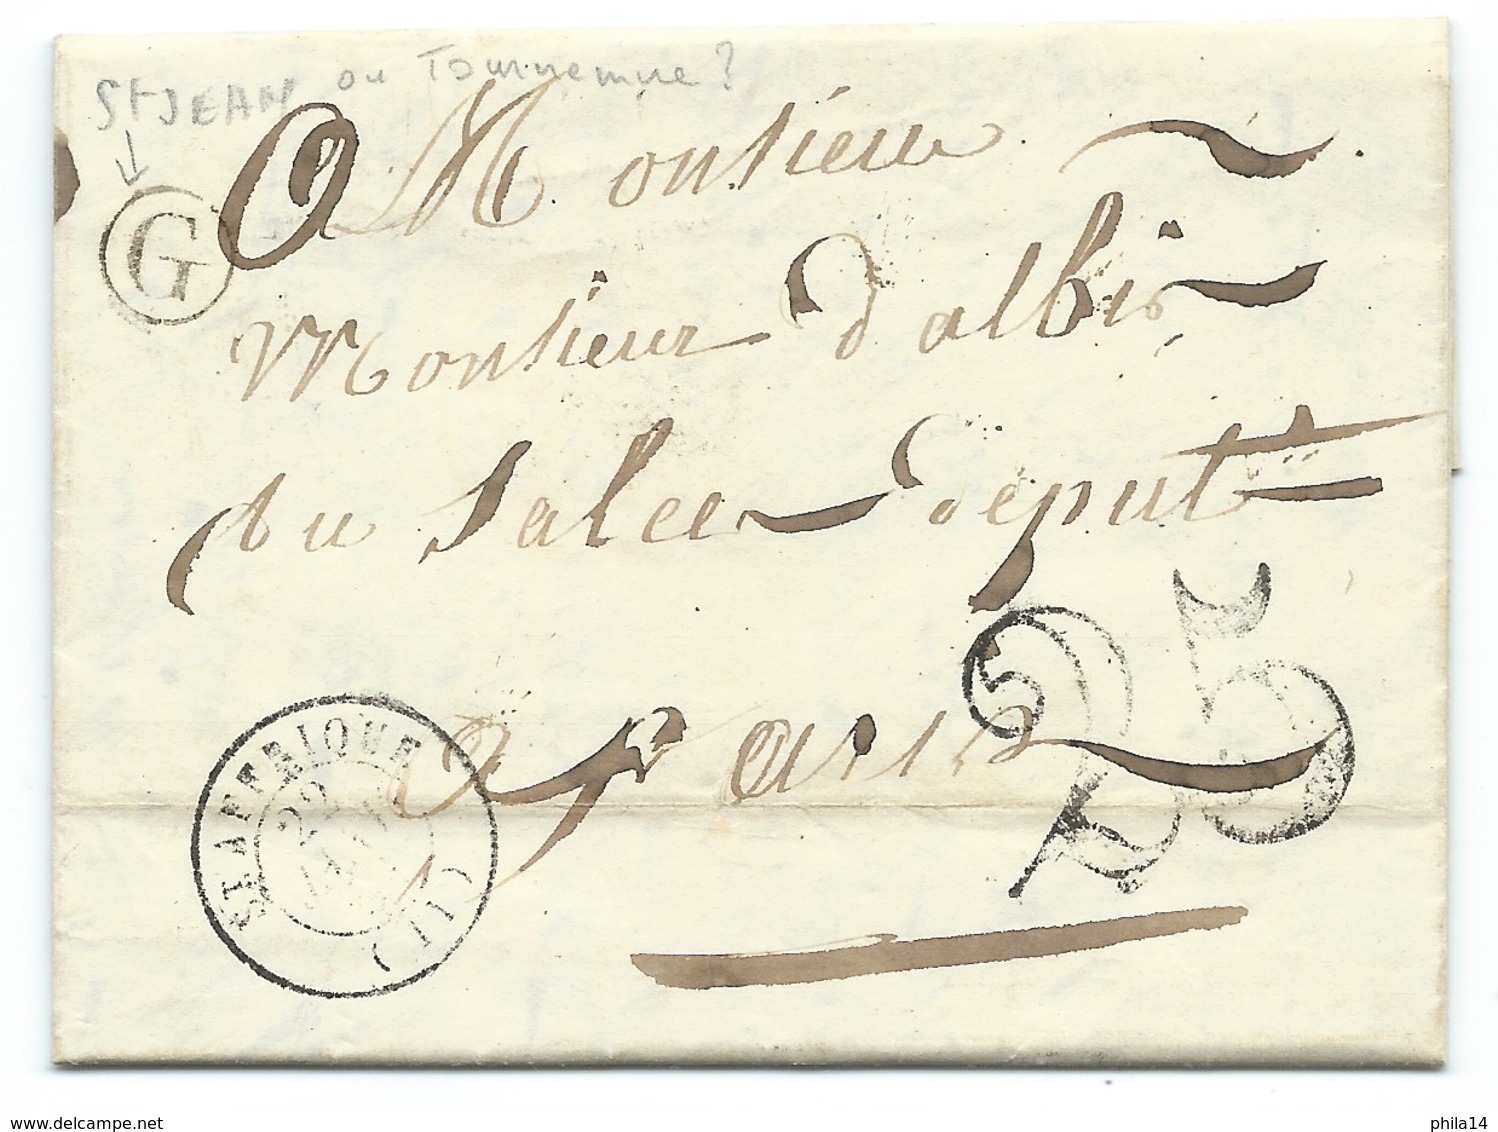 St JEAN ou Tournemire ?
G
A Monsieur
Monsieur d'albis
du Salee député
a paris
25
ST AFFRIQUE
22
JANV
(11)
www.delcampe.net
phila14